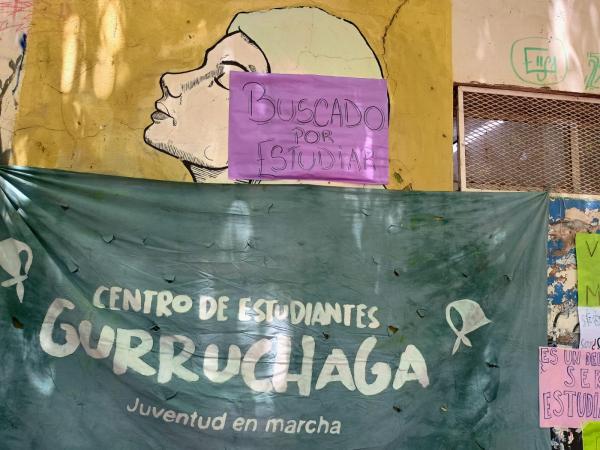 BUSCADO
POR
ESTUDIAR
CENTRO DE ESTUDIANTES
GURRUCHAGA
Juventud en marcha
ES UN
SER